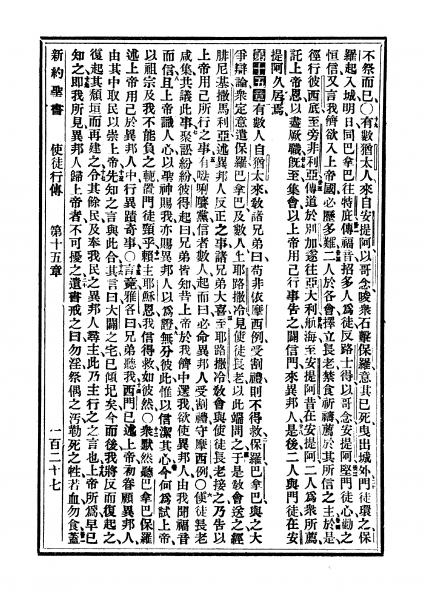 不祭而已〇有數猶太人來自安提阿以哥念唆衆石擊保羅意其已死曳出城外門徒環之保
羅起入城明日同巴拿巴往特庇傳福音招多人爲徒反路士得以哥念安提阿堅門徒心勸之
恒信又言我儕欲入上帝國必歷多難二人於各會擇立長老禁食祈禱薦於其所信之主於是
徑行彼西底至旁非利亞傳道於別加遂往亞大利航海至安提阿昔在安提阿二人爲衆所薦
託上帝恩以盡厥職旣至集會以上帝用己行事告之闢信門來異邦人是後二人與門徒在安
提阿久居焉
第十五章有數人自猶太來敎諸兄弟曰苟非依摩西例受割禮則不得救保羅巴拿巴與之大
爭辯論衆定意遣保羅巴拿巴及數人上耶路撒冷見使徒長老以此端問之于是敎會送之經
腓尼基撒馬利亞述異邦人反正之事諸兄弟大喜至耶路撒冷敎會與使徒長老接之乃告以
上帝用己所行之事有㗭唎㘔黨信者數人起而曰必命異邦人受割禮守摩西例〇使徒長老
咸集共議此事聚訟紛紛彼得起曰兄弟皆知昔上帝於我儕中選我欲使異邦人由我聞福音
而信且上帝識人心以聖神賜我亦賜異邦人以爲證無分彼此惟以信潔其心今何爲試上帝
以祖宗及我不能負之軛置門徒頸乎賴主耶穌恩我信得救如彼然〇衆默然聽巴拿巴保羅
述上帝用己於異邦人中行異蹟奇事〇言竟雅各曰兄弟聽我西門已述上帝初眷顧異邦人
由其中取民以崇上帝先知之言與此合其言曰大闢之宅已傾圮矣今而後我將反而復起之
復起其頹垣而再建之令其餘民及奉我民之異邦人尋主此乃主行之之言也上帝所爲早已
知之卽我所見異邦人歸上帝者不可擾之遺書戒之曰勿淫祭偶之物勒死之牲若血勿食蓋
新約聖書 使徒行傳 第十五章 一百二十七